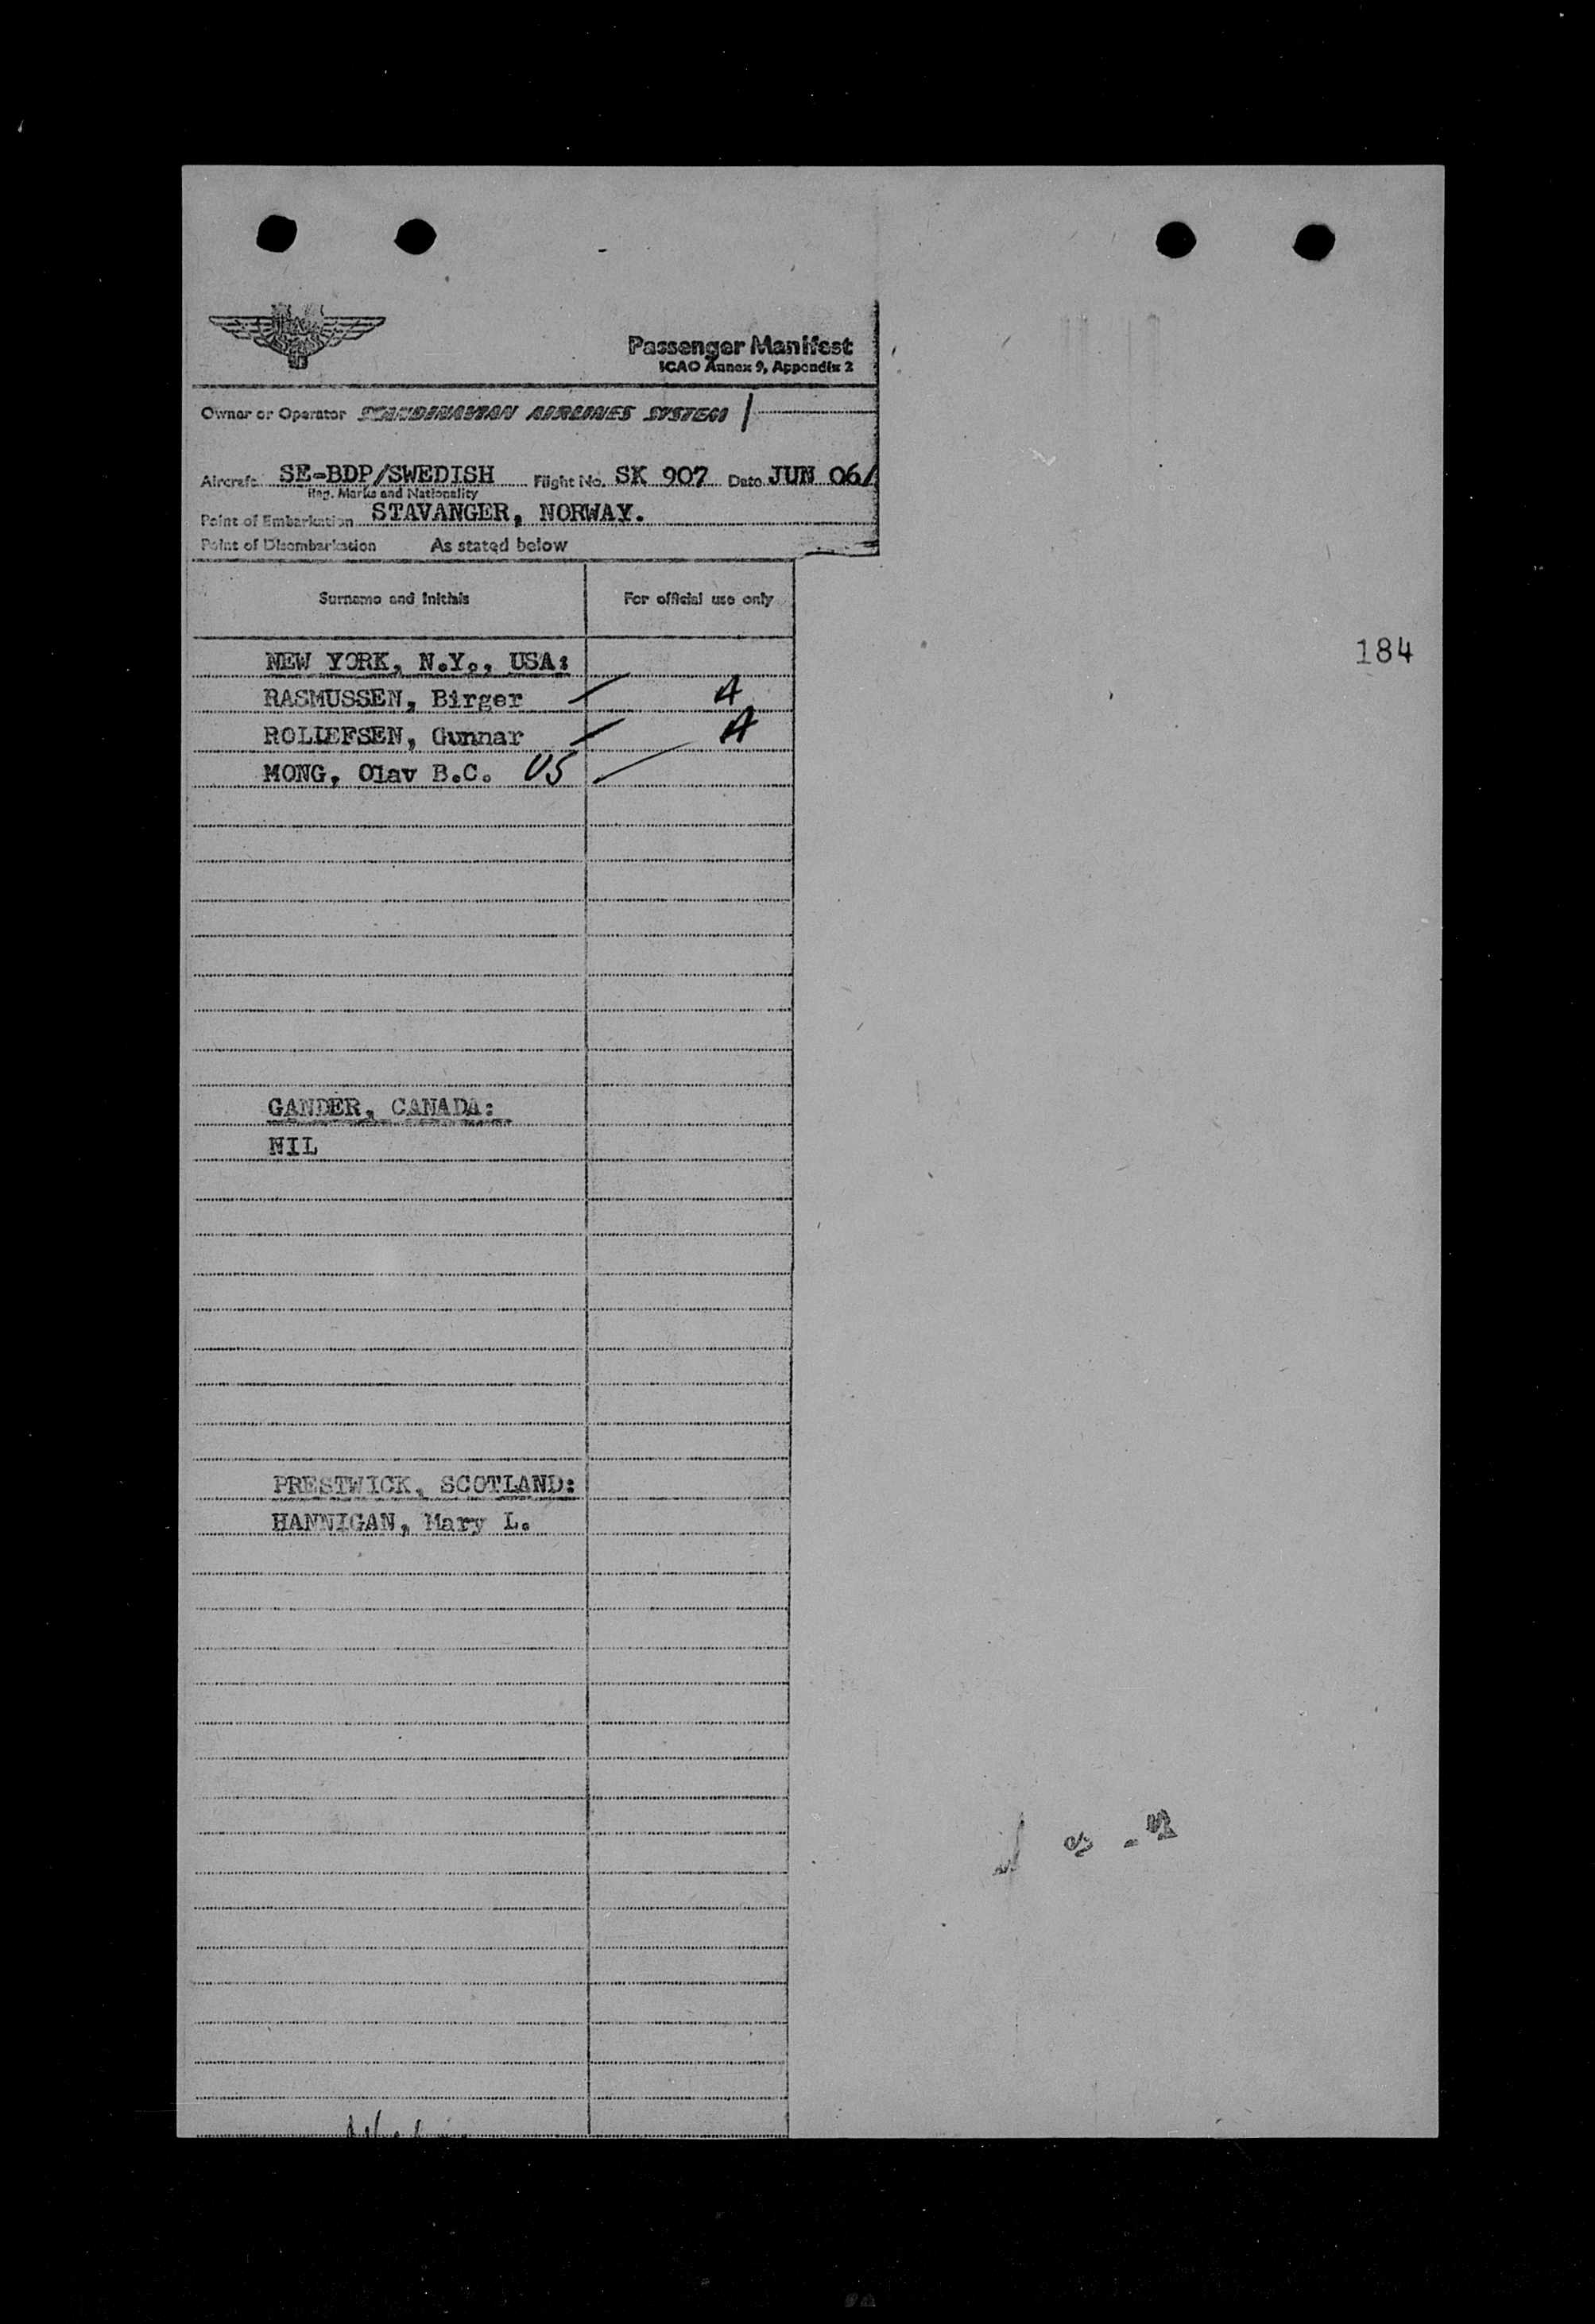 Passenger Manifest
ICAO Annex 9, Appendix 2
Owner or Operator SCANDINAVIAN AIRLINES SYSTEM
Aircraft SE-BDP/SWEDISH Flight No. SK 907 Date JUN 06/
Reg. Marks and Nationality
Point of Embarkation STAVANGER, NORWAY.
Point of Disembarkation As stated below
Surname and Initials For official use only
184
NEW YORK, N.Y., USA:
RASMUSSEN, Birger A
ROLLEFSEN, Gunnar A
MONG, Olav B.C. US
GANDER, CANADA:
NIL
PRESTWICK, SCOTLAND:
HANNIGAN, Mary L.